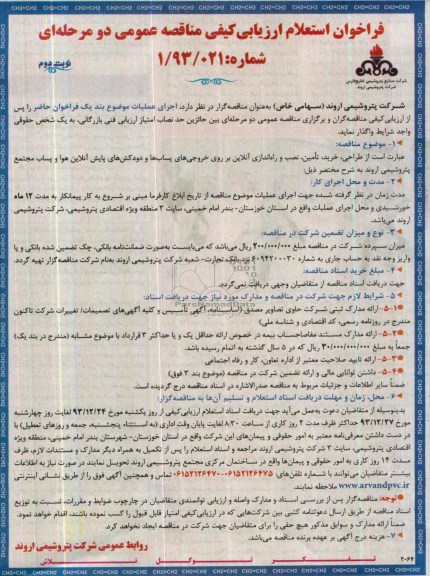 فراخوان استعلام ارزیابی‌کیفی مناقصه عمومی دو مرحله‌ای
شماره: ۱/۹۳/۰۲۱
نوبت دوم
شرکت صنایع پتروشیمی خلیج فارس
شرکت پتروشیمی اروند
شرکت پتروشیمی اروند (سهامی خاص) به‌عنوان مناقصه‌گزار در نظر دارد، اجرای عملیات موضوع بند یک فراخوان حاضر را پس
از ارزیابی‌کیفی مناقصه‌گران و برگزاری مناقصه عمومی دو مرحله‌ای بین حائزین حد نصاب امتیاز ارزیابی فنی بازرگانی، به یک شخص حقوقی
واجد شرایط واگذار نماید.
۱- موضوع مناقصه:
عبارت است از طراحی، خرید، تأمین، نصب و راه‌اندازی آنلاین بر روی خروجی‌های پساب‌ها و دودکش‌های پایش آنلاین هوا و پساب مجتمع
پتروشیمی اروند به شرح مختصر ذیل:
۲- مدت و محل اجرای کار:
مدت زمان در نظر گرفته شده جهت اجرای عملیات موضوع مناقصه از تاریخ ابلاغ کارفرما مبنی بر شروع به کار پیمانکار به مدت ۱۲ ماه
خورشیدی و محل اجرای عملیات واقع در استان خوزستان- بندر امام خمینی، سایت ۳ منطقه ویژه اقتصادی پتروشیمی، شرکت پتروشیمی
اروند می‌باشد.
۳- نوع و میزان تضمین شرکت در مناقصه:
میزان سپرده شرکت در مناقصه مبلغ ۲۰۰/۰۰۰/۰۰۰ ریال می‌باشد که می‌بایست به‌صورت ضمانت‌نامه بانکی، چک تضمین شده بانکی و یا
واریز وجه نقد به حساب جاری به شماره ۶۰۹۴۲۰۰۰۳۰ نزد بانک تجارت- شعبه شرکت پتروشیمی اروند به‌نام شرکت مناقصه‌گزار تهیه گردد.
۴- مبلغ خرید اسناد مناقصه:
جهت دریافت اسناد مناقصه از متقاضیان وجهی دریافت نمی‌گردد.
۵- شرایط لازم جهت شرکت در مناقصه و مدارک مورد نیاز جهت دریافت اسناد:
۵-۱- ارائه مدارک ثبتی شرکت حاوی تصاویر مصدق (اساسنامه، آگهی تأسیس و کلیه آگهی‌های تصمیمات/ تغییرات شرکت تاکنون
مندرج در روزنامه رسمی، کد اقتصادی و شناسه ملی)
۵-۲- ارائه مدارک مستند مفاصاحساب بیمه در خصوص ارائه حداقل یک و یا حداکثر ۳ قرارداد با موضوع مشابه (مندرج در بند یک)
جمعاً به مبلغ ۳۰/۰۰۰/۰۰۰/۰۰۰ ریال که در ۵ سال گذشته به اتمام رسیده باشد.
۵-۳- ارائه تایید صلاحیت معتبر از اداره تعاون، کار و رفاه اجتماعی
۵-۴- داشتن توانایی مالی و ارائه تضمین شرکت در مناقصه (موضوع بند ۳ فوق)
ضمناً سایر اطلاعات و جزئیات مربوط به مناقصه صدرالاشاره در اسناد مناقصه درج گردیده است.
۶- محل، زمان و مهلت دریافت اسناد استعلام و تسلیم آن‌ها به مناقصه‌گزار:
بدینوسیله از متقاضیان دعوت به‌عمل می‌آید جهت دریافت اسناد استعلام ارزیابی کیفی از روز یکشنبه مورخ ۹۳/۱۲/۲۴ لغایت روز چهارشنبه
مورخ ۹۳/۱۲/۲۷ حداکثر ظرف مدت ۴ روز کاری از ساعت ۸:۳۰ لغایت پایان وقت اداری (به استثناء پنجشنبه، جمعه و روزهای تعطیل) با
در دست داشتن معرفی‌نامه معتبر به امور حقوقی و پیمان‌های این شرکت واقع در استان خوزستان- شهرستان بندر امام خمینی، منطقه ویژه
اقتصادی پتروشیمی، سایت ۳ شرکت پتروشیمی اروند مراجعه و اسناد استعلام را پس از تکمیل به همراه دیگر مدارک و مستندات لازم، ظرف
مدت ۱۴ روز کاری به امور حقوقی و پیمان‌ها واقع در ساختمان مرکزی مجتمع پتروشیمی اروند تحویل نمایند در صورت نیاز به اطلاعات
بیشتر متقاضیان می‌توانند با شماره تلفن‌های: تماس و همچنین آگهی فوق را از طریق نشانی اینترنتی
www.arvandpvc.ir ملاحظه نمایند.
توجه: مناقصه‌گزار پس از بررسی اسناد و مدارک واصله و ارزیابی توانمندی متقاضیان در چارچوب ضوابط و مقررات، نسبت به توزیع
اسناد مناقصه از طریق ارسال دعوتنامه کتبی بین شرکت‌هایی که در ارزیابی‌کیفی امتیاز قابل قبول را کسب نموده باشند، اقدام خواهد نمود.
ضمناً ارائه مدارک و سوابق مذکور هیچ حقی را برای متقاضیان جهت شرکت در مناقصه ایجاد نخواهد کرد.
۷- هزینه درج آگهی بر عهده برنده مناقصه می‌باشد.
روابط عمومی شرکت پتروشیمی اروند
۲۰۶۴
تفکر توکل تلاش